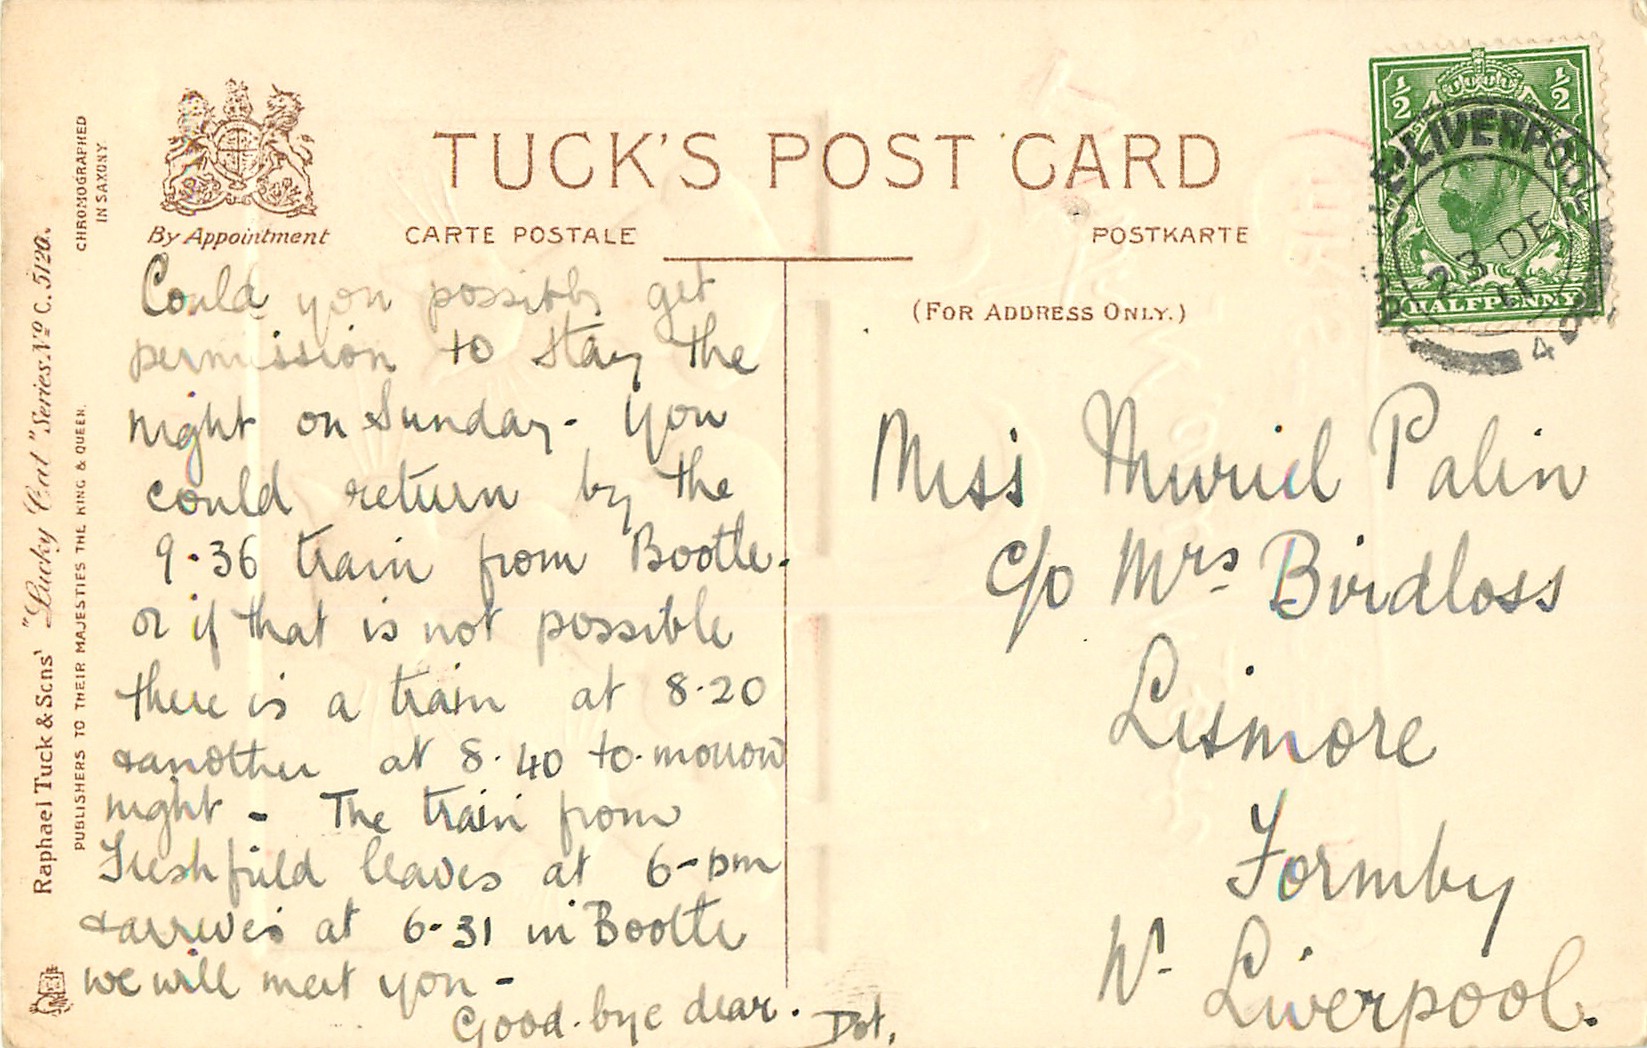 TUCK'S POST CARD
By Appointment
CARTE POSTALE
POSTKARTE
(FOR ADDRESS ONLY.)
CHROMOGRAPHED
IN SAXONY.
Raphael Tuck & Sons' "Lucky Cat" Series. No C. 5120.
PUBLISHERS TO THEIR MAJESTIES THE KING & QUEEN.
Could you possibly get
permission to stay the
night on Sunday - you
could return by the
9.36 train from Bootle.
or if that is not possible
there is a train at 8.20
& another at 8.40 to-morrow
night - The train from
Freshfield leaves at 6-pm
& arrives at 6-31 in Bootle
we will meet you -
Good-bye dear. Dot.
½ ½
LIVERPOOL
23 DE
11
4
HALFPENNY
Miss Muriel Palin
c/o Mrs Birdloss
Lismore
Formby
Nr Liverpool.